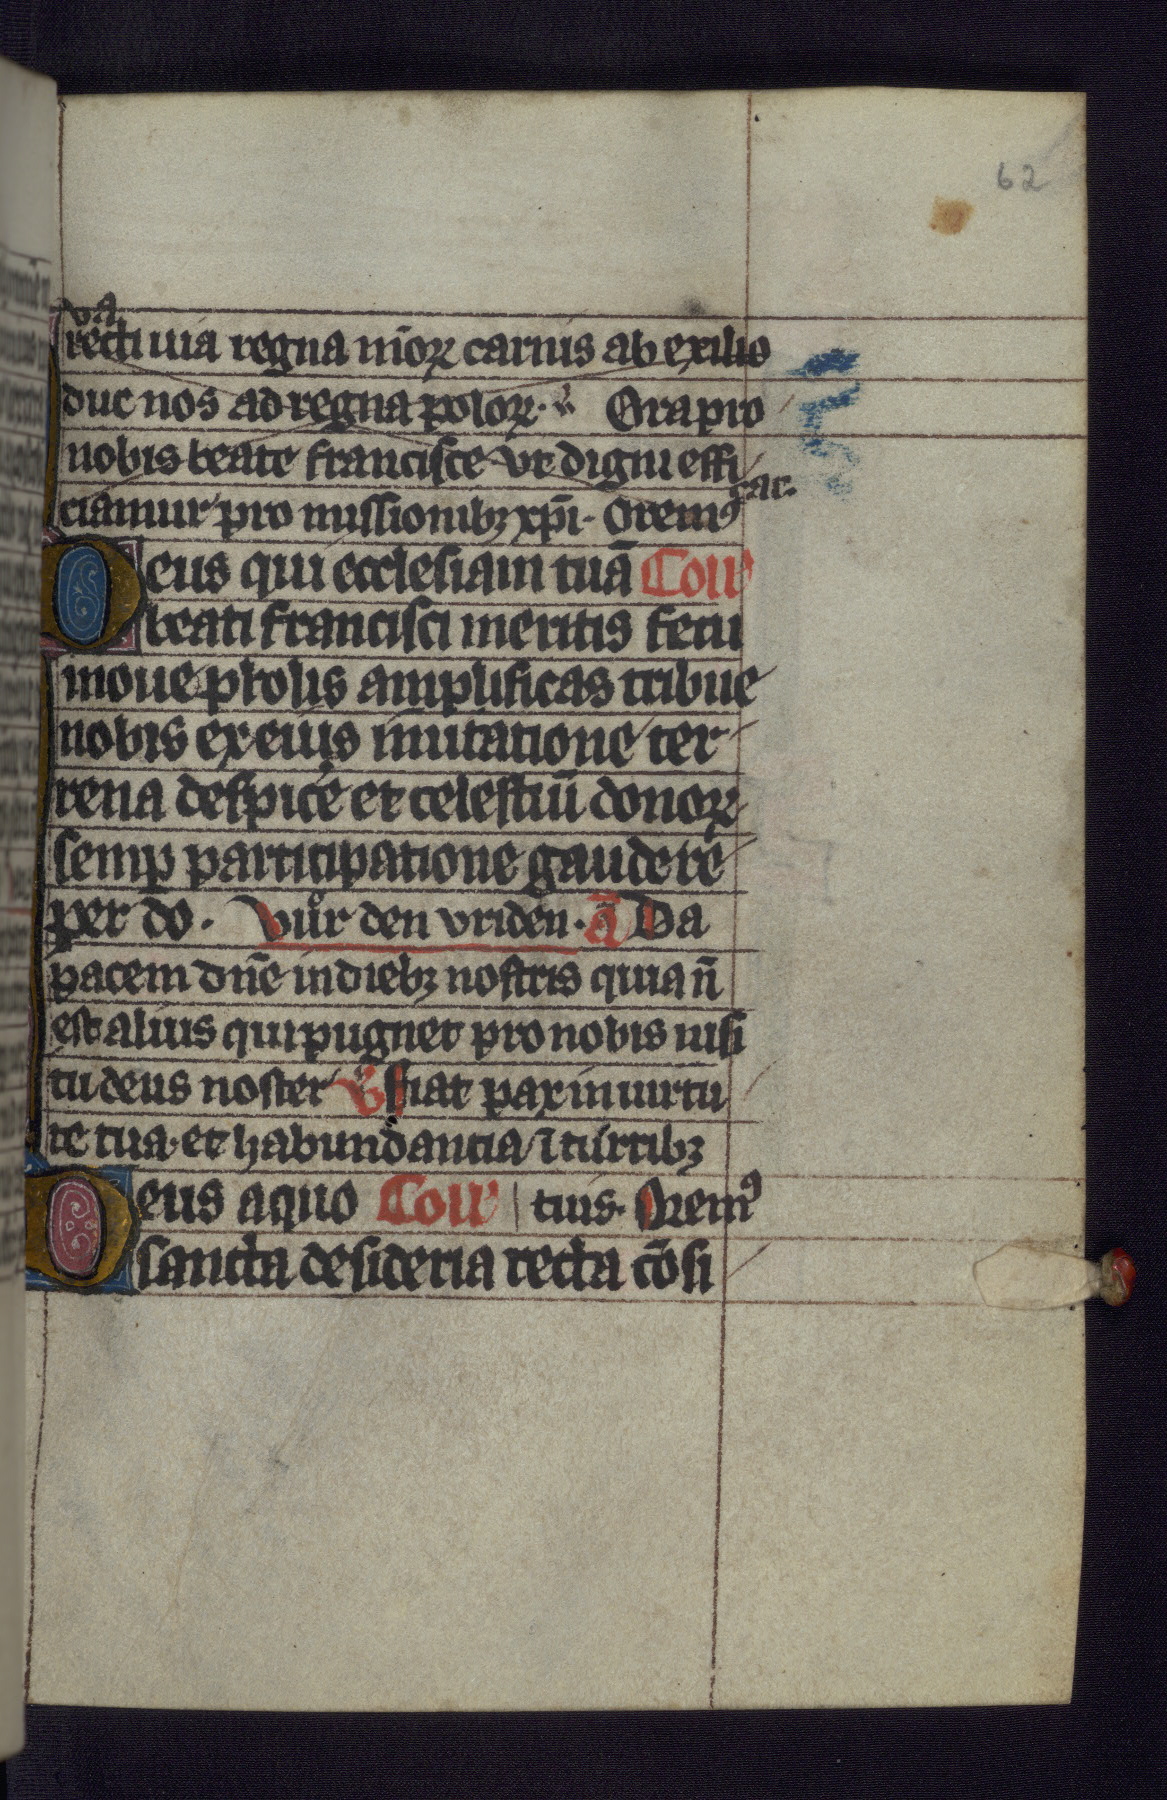 62
va
recti uia regna mōꝝ carnis ab exilio
duc nos ad regna poloꝝ. ℣ Ora pro
nobis beate francisce vt digni effi
rac.
ciamur pro missionibꝫ xp̄i. Oremꝰ
Deus qui ecclesiam tuā Coll'
beati francisci meritis fetu
noue prolis amplificas tribue
nobis ex eius imitatione ter
rena despice et celestiū donoꝝ
semꝑ participatione gaudere
per do. Vůr den vriden. ā Da
pacem dn̄e in diebꝫ nostris quia n̄
est alius qui pugnet pro nobis nisi
tu deus noster ℣ fiat pax in uirtu
te tua. et habundantia ī turribꝫ
Deus a quo Coll' | tuis. Oremꝰ
sancta desideria recta cōsi